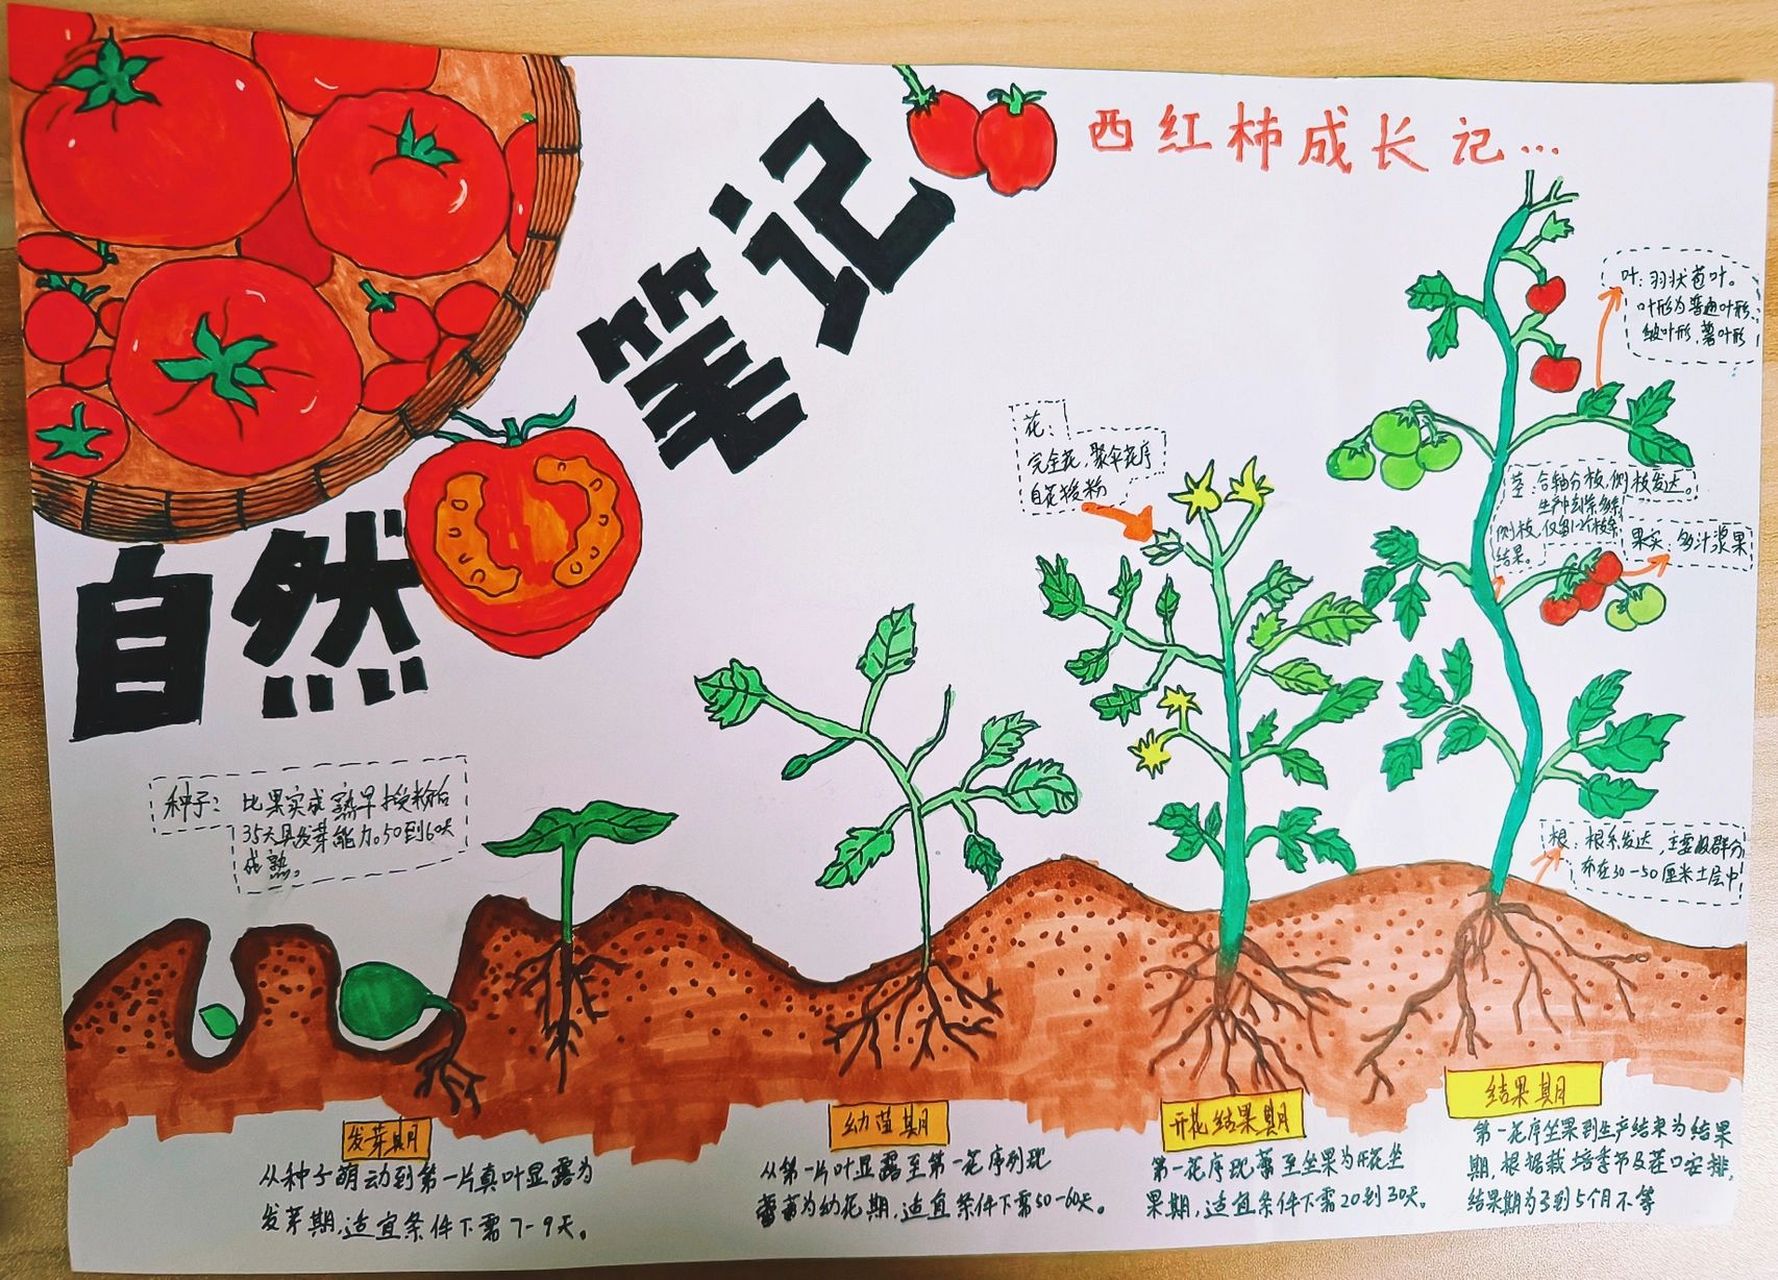 自然
笔记
西红柿成长记...
叶:羽状苞叶。
叶形为普通叶形、
皱叶形,薯叶形
花:
完全花,聚伞花序
自花授粉
茎:合轴分枝,侧枝发达。
生产中
侧枝,仅留1-2枝
结果。
果实:多汁浆果
种子:比果实成熟早授粉后
35天具发芽能力。50到60天
成熟。
根:根系发达,主要根群分
布在30-50厘米土层中
发芽期
从种子萌动到第一片真叶显露为
发芽期,适宜条件下需7-9天。
幼苗期
从第一片叶显露至第一花序到现
蕾为幼花期,适宜条件下需50-60天。
开花结果期
第一花序现蕾至坐果为开花坐
果期,适宜条件下需20到30天。
结果期
第一花序坐果到生产结束为结果
期,根据栽培季节及茬口安排,
结果期为3到5个月不等